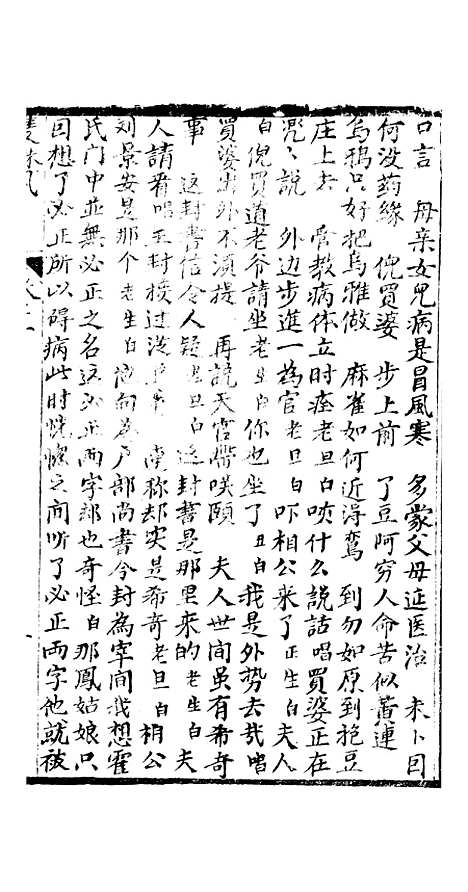 口言　母亲女児病是冒風寒　多蒙父母延医治　未卜因
何没药緣　倪買婆　步上前　了豆阿穷人命苦似黃連
烏鴉只好把烏雅做　麻雀如何近淂鸾　到勿如原到抱豆
庄上去　管教病体立时痊老旦白唉什么說話唱買婆正在
說　外边步進一為官老旦白吓相公来了正生白夫人
白倪買道老爷請坐老旦白你也坐了丑白我是外势去哉唱
買婆出外不須提　再説天官帶唉頤　夫人世间虽有希奇
事　这封書信令人疑老旦白这封書是那里来的老生白夫
人請看唱玉封接过　称却实是希奇老旦白相公
刘景安是那个老生白　為户部尚書今封為宰同我想霍
氏门中並無必正之名这必正両字却也奇怪白那鳳姑娘只
因想了必正所以碍病此时恍惚之间听了必正両字他就被